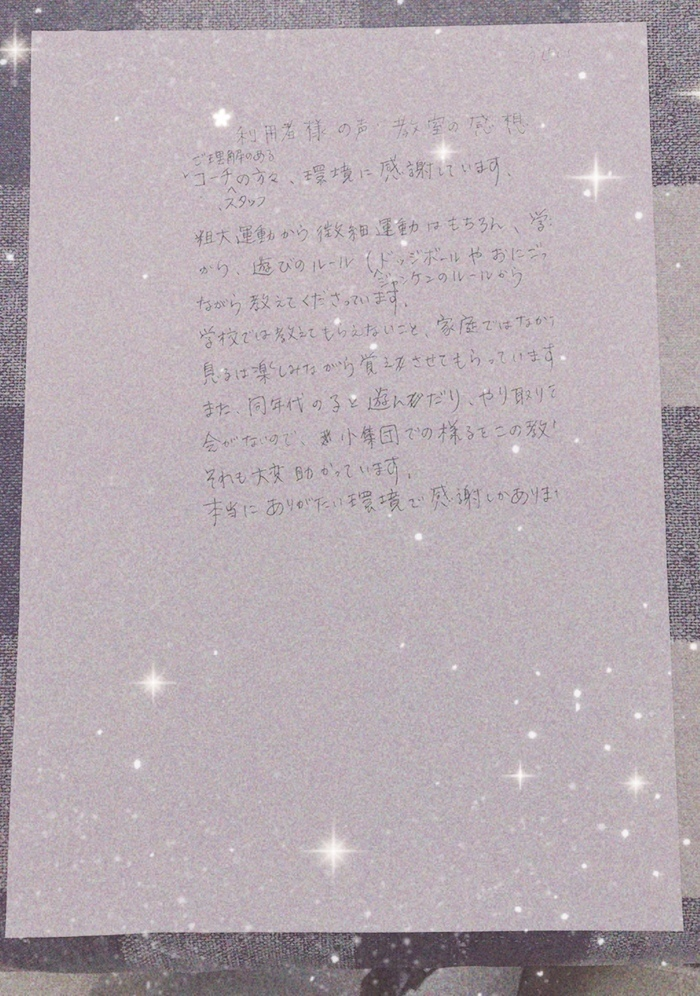 利用者様の声 教室の感想
ご理解のある
・コーチの方々、環境に感謝しています。
スタッフ
粗大運動から微細運動はもちろん、学
から、遊びのルール(ドッジボールやおにごっ
ジャンケンのルールから
ながら教えてくださっています。
学校では教えてもらえないこと、家庭ではなか
見るは楽しみながら覚えさせてもらっています
また、同年代の子と遊んだり、やり取りで
会がないので、小集団での様子をこの教
それも大変助かっています。
本当にありがたい環境で感謝しかありま